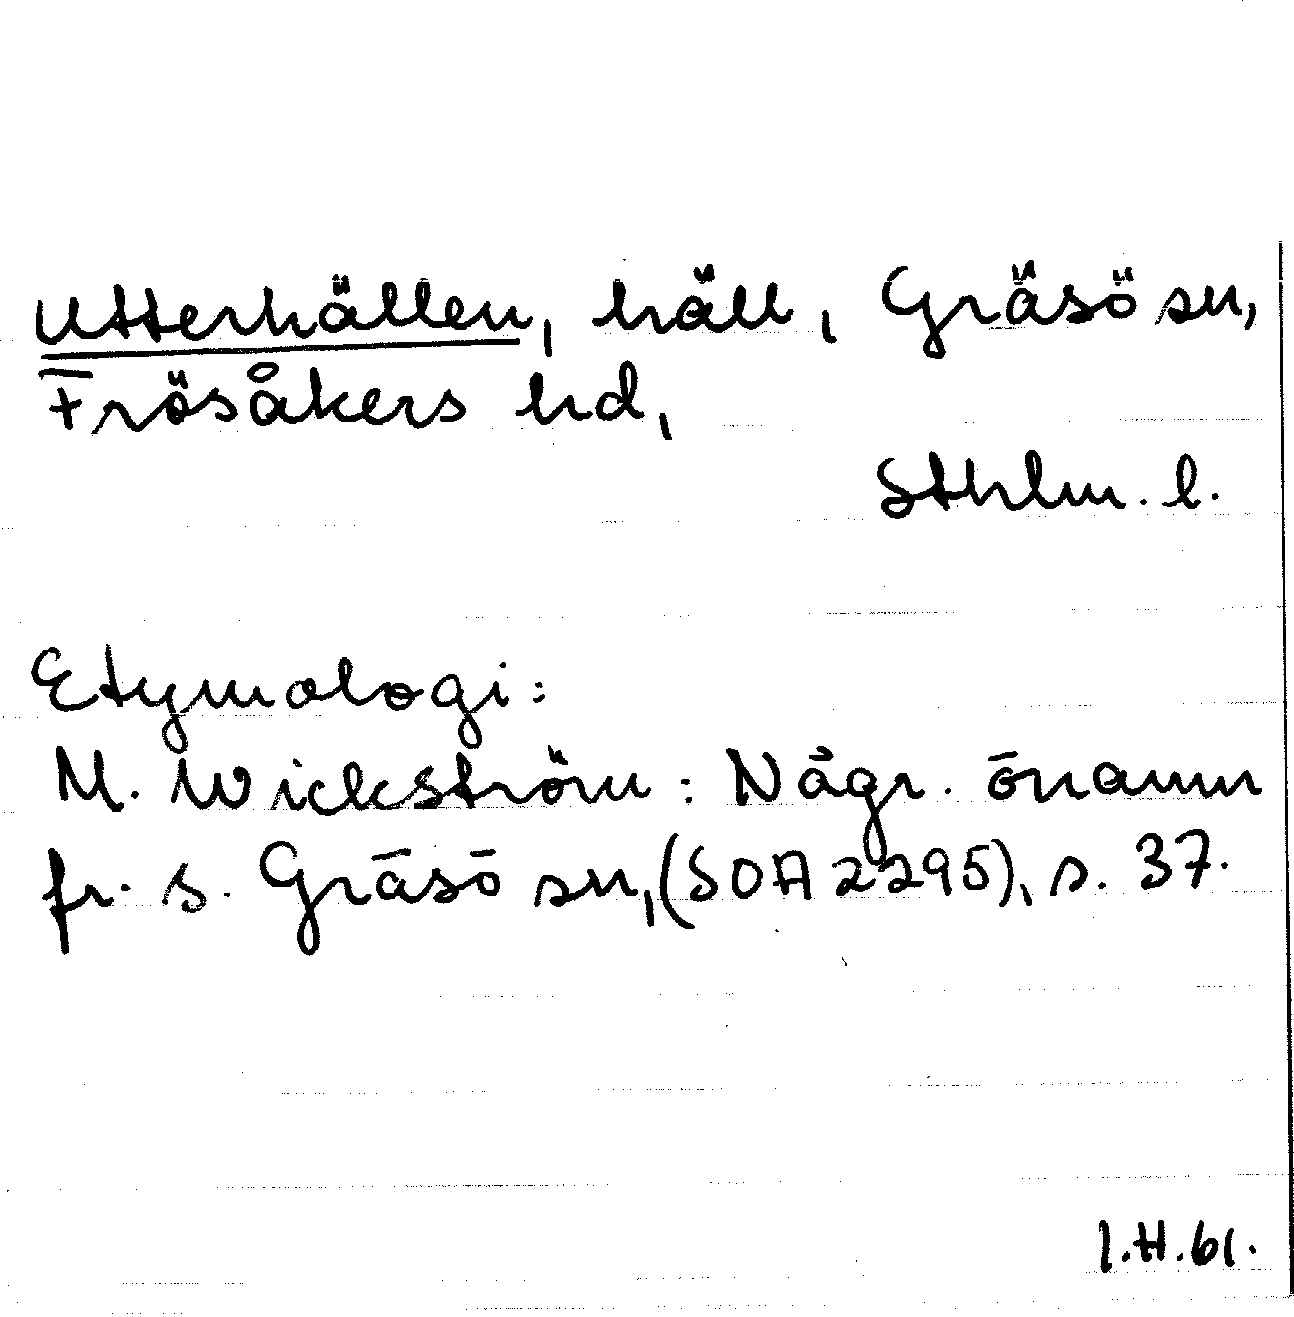 Utterhällen, häll, Gräsö sn,
Frösåkers hd,
Sthlm. l.
Etymologi:
M. Wickström: Någr. önamn
fr. s. Gräsö sn, (SOA 2295), s. 37.
I.H.61.